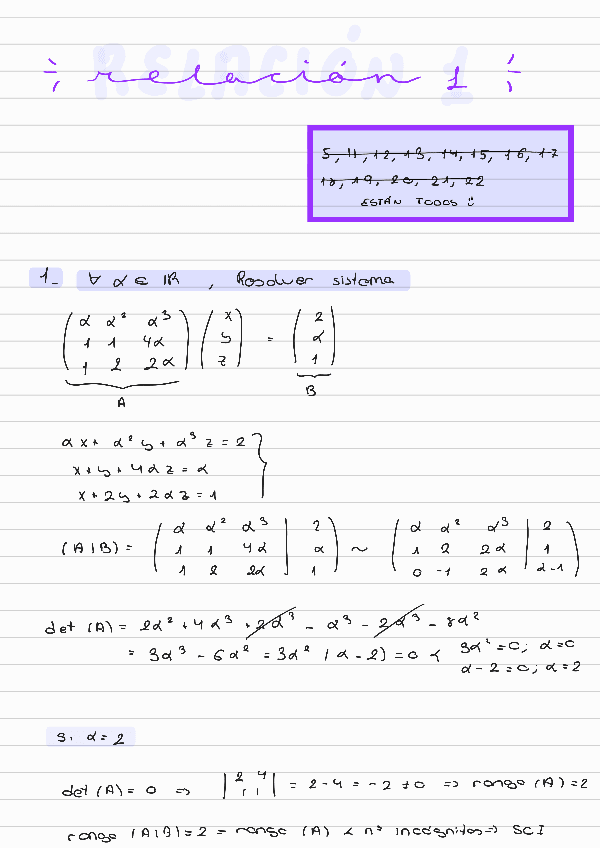 RELACIÓN 1
relación 1
5, 11, 12, 13, 14, 15, 16, 17
18, 19, 20, 21, 22
ESTÁN TODOS :)
1_ ∀ α ∈ IR , Resolver sistema
( α α² α³ ) ( x ) ( 2 )
( 1 1 4α ) ( y ) = ( α )
( 1 2 2α ) ( z ) ( 1 )
A B
αx + α²y + α³z = 2
x + y + 4αz = α
x + 2y + 2αz = 1
( α α² α³ | 2 ) ( α α² α³ | 2 )
(A|B) = ( 1 1 4α | α ) ~ ( 1 2 2α | 1 )
( 1 2 2α | 1 ) ( 0 -1 2α | α-1 )
det (A) = 2α² + 4α³ + 2α³ - α³ - 2α³ - 8α²
= 3α³ - 6α² = 3α² (α - 2) = 0 < 3α² = 0; α = 0
α - 2 = 0; α = 2
Si α = 2
det (A) = 0 => | 2 4 |
| 1 1 | = 2 - 4 = -2 ≠ 0 => rango (A) = 2
rango (A|B) = 2 = rango (A) < nº incógnitas => SCI